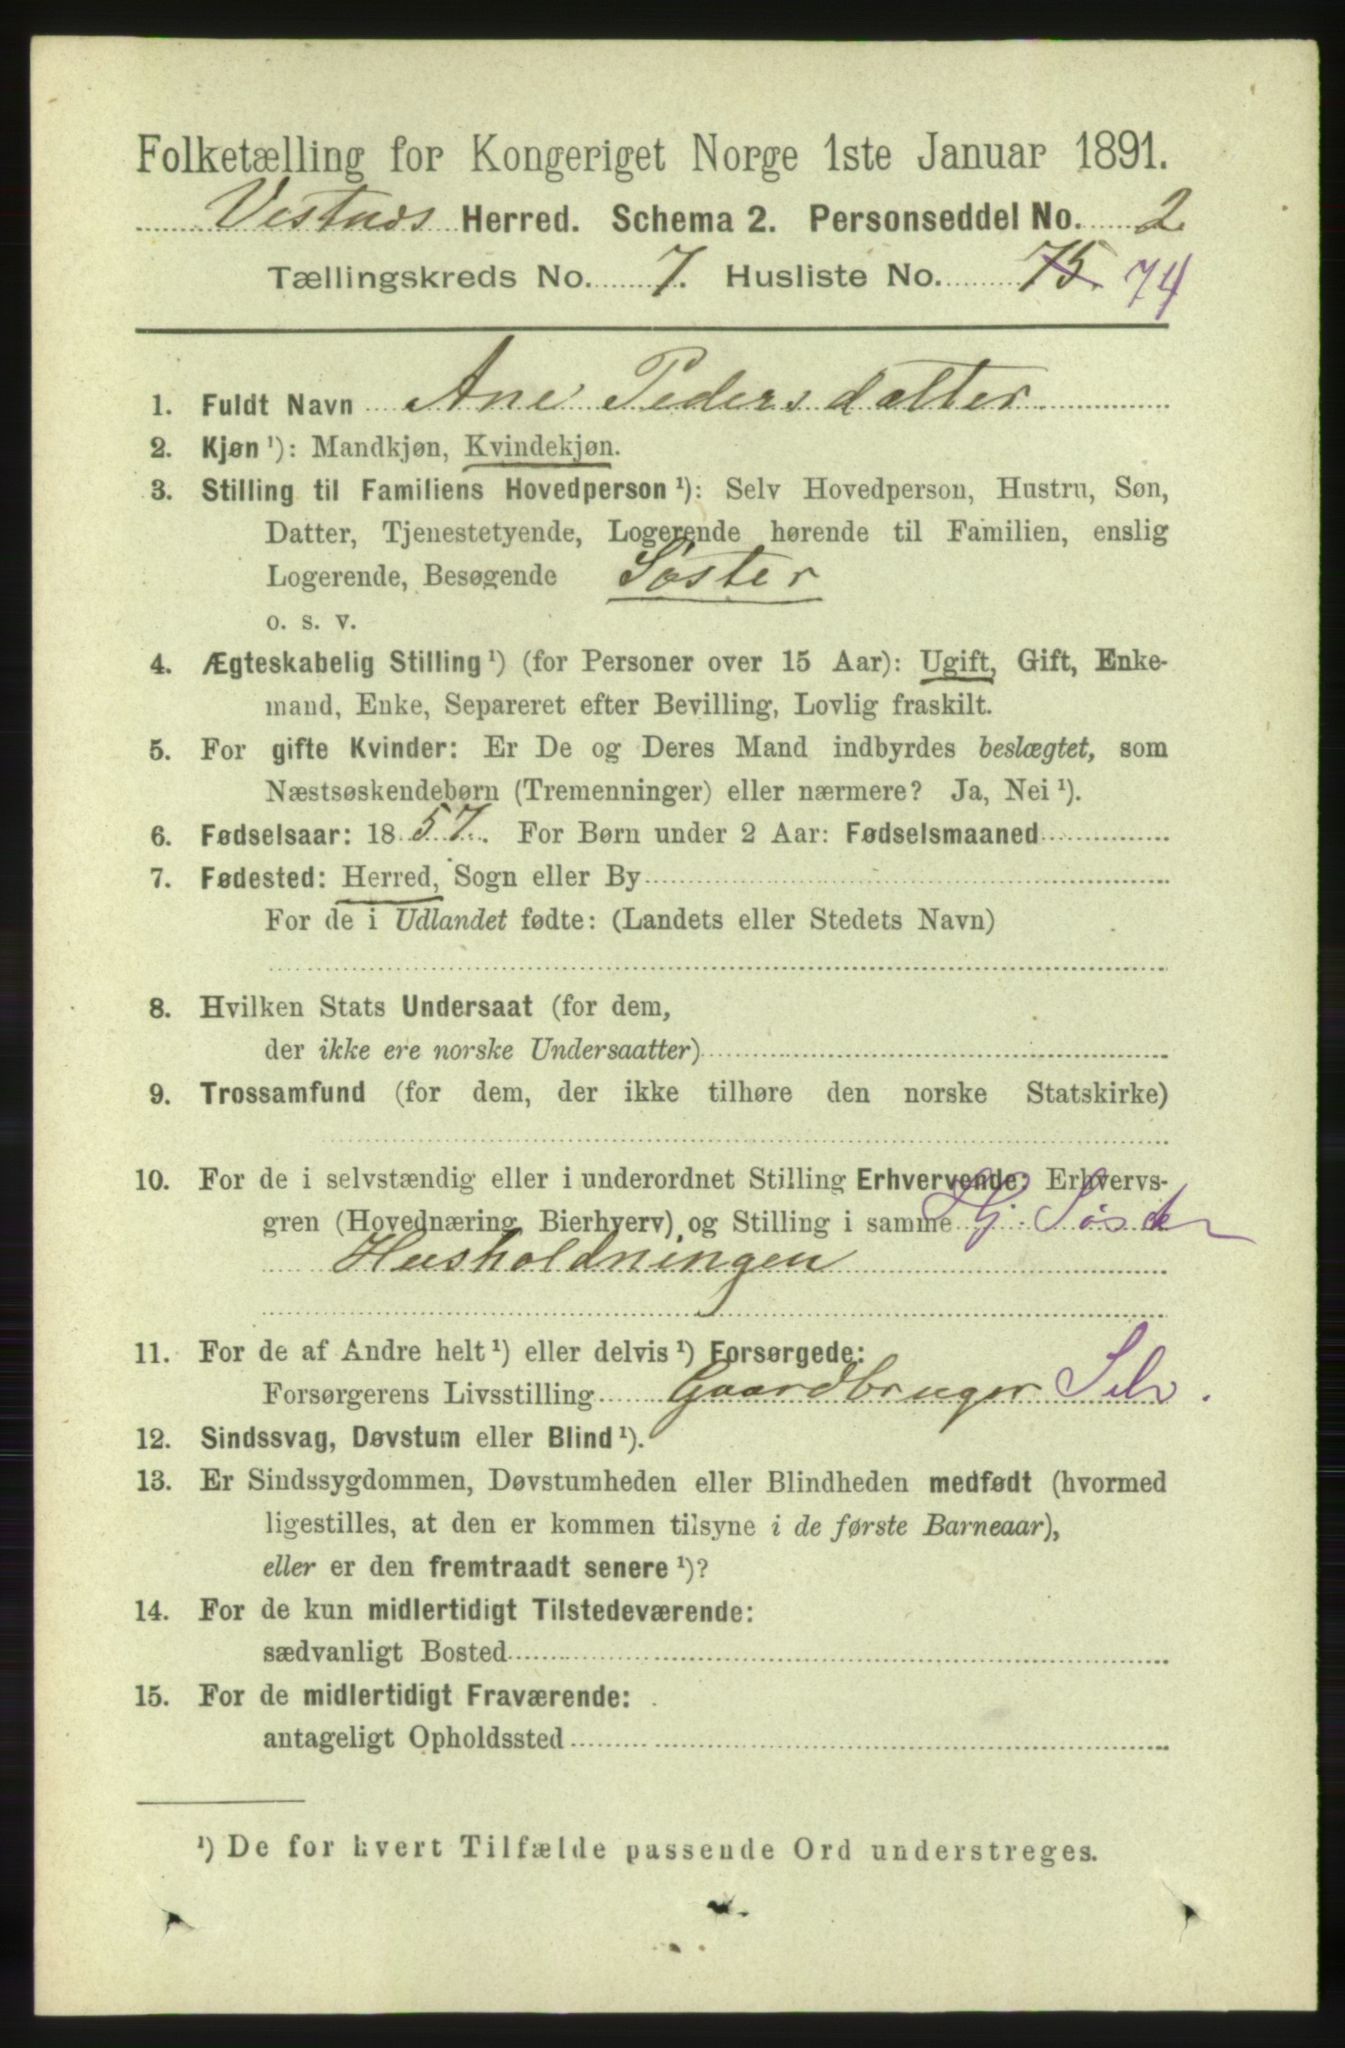 Folketælling for Kongeriget Norge 1ste Januar 1891.
Vestnæs Herred. Schema 2. Personseddel No. 2
Tællingskreds No. 7. Husliste No. 75. 74
1. Fuldt Navn Ane Pedersdatter
2. Kjøn ¹): Mandkjøn, Kvindekjøn.
3. Stilling til Familiens Hovedperson ¹): Selv Hovedperson, Hustru, Søn,
Datter, Tjenestetyende, Logerende hørende til Familien, enslig
Logerende, Besøgende Søster
o. s. v.
4. Ægteskabelig Stilling ¹) (for Personer over 15 Aar): Ugift, Gift, Enke-
mand, Enke, Separeret efter Bevilling, Lovlig fraskilt.
5. For gifte Kvinder: Er De og Deres Mand indbyrdes beslægtet, som
Næstsøskendebørn (Tremenninger) eller nærmere? Ja, Nei ¹).
6. Fødselsaar: 1857. For Børn under 2 Aar: Fødselsmaaned
7. Fødested: Herred, Sogn eller By
For de i Udlandet fødte: (Landets eller Stedets Navn)
8. Hvilken Stats Undersaat (for dem,
der ikke ere norske Undersaatter)
9. Trossamfund (for dem, der ikke tilhøre den norske Statskirke)
10. For de i selvstændig eller i underordnet Stilling Erhvervende: Erhvervs-
gren (Hovednæring, Bierhverv) og Stilling i samme Hj. Søster
Husholdningen
11. For de af Andre helt ¹) eller delvis ¹) Forsørgede:
Forsørgerens Livsstilling Gaardbruger Selv.
12. Sindssvag, Døvstum eller Blind ¹).
13. Er Sindssygdommen, Døvstumheden eller Blindheden medfødt (hvormed
ligestilles, at den er kommen tilsyne i de første Barneaar),
eller er den fremtraadt senere ¹)?
14. For de kun midlertidigt Tilstedeværende:
sædvanligt Bosted
15. For de midlertidigt Fraværende:
antageligt Opholdssted
¹) De for hvert Tilfælde passende Ord understreges.